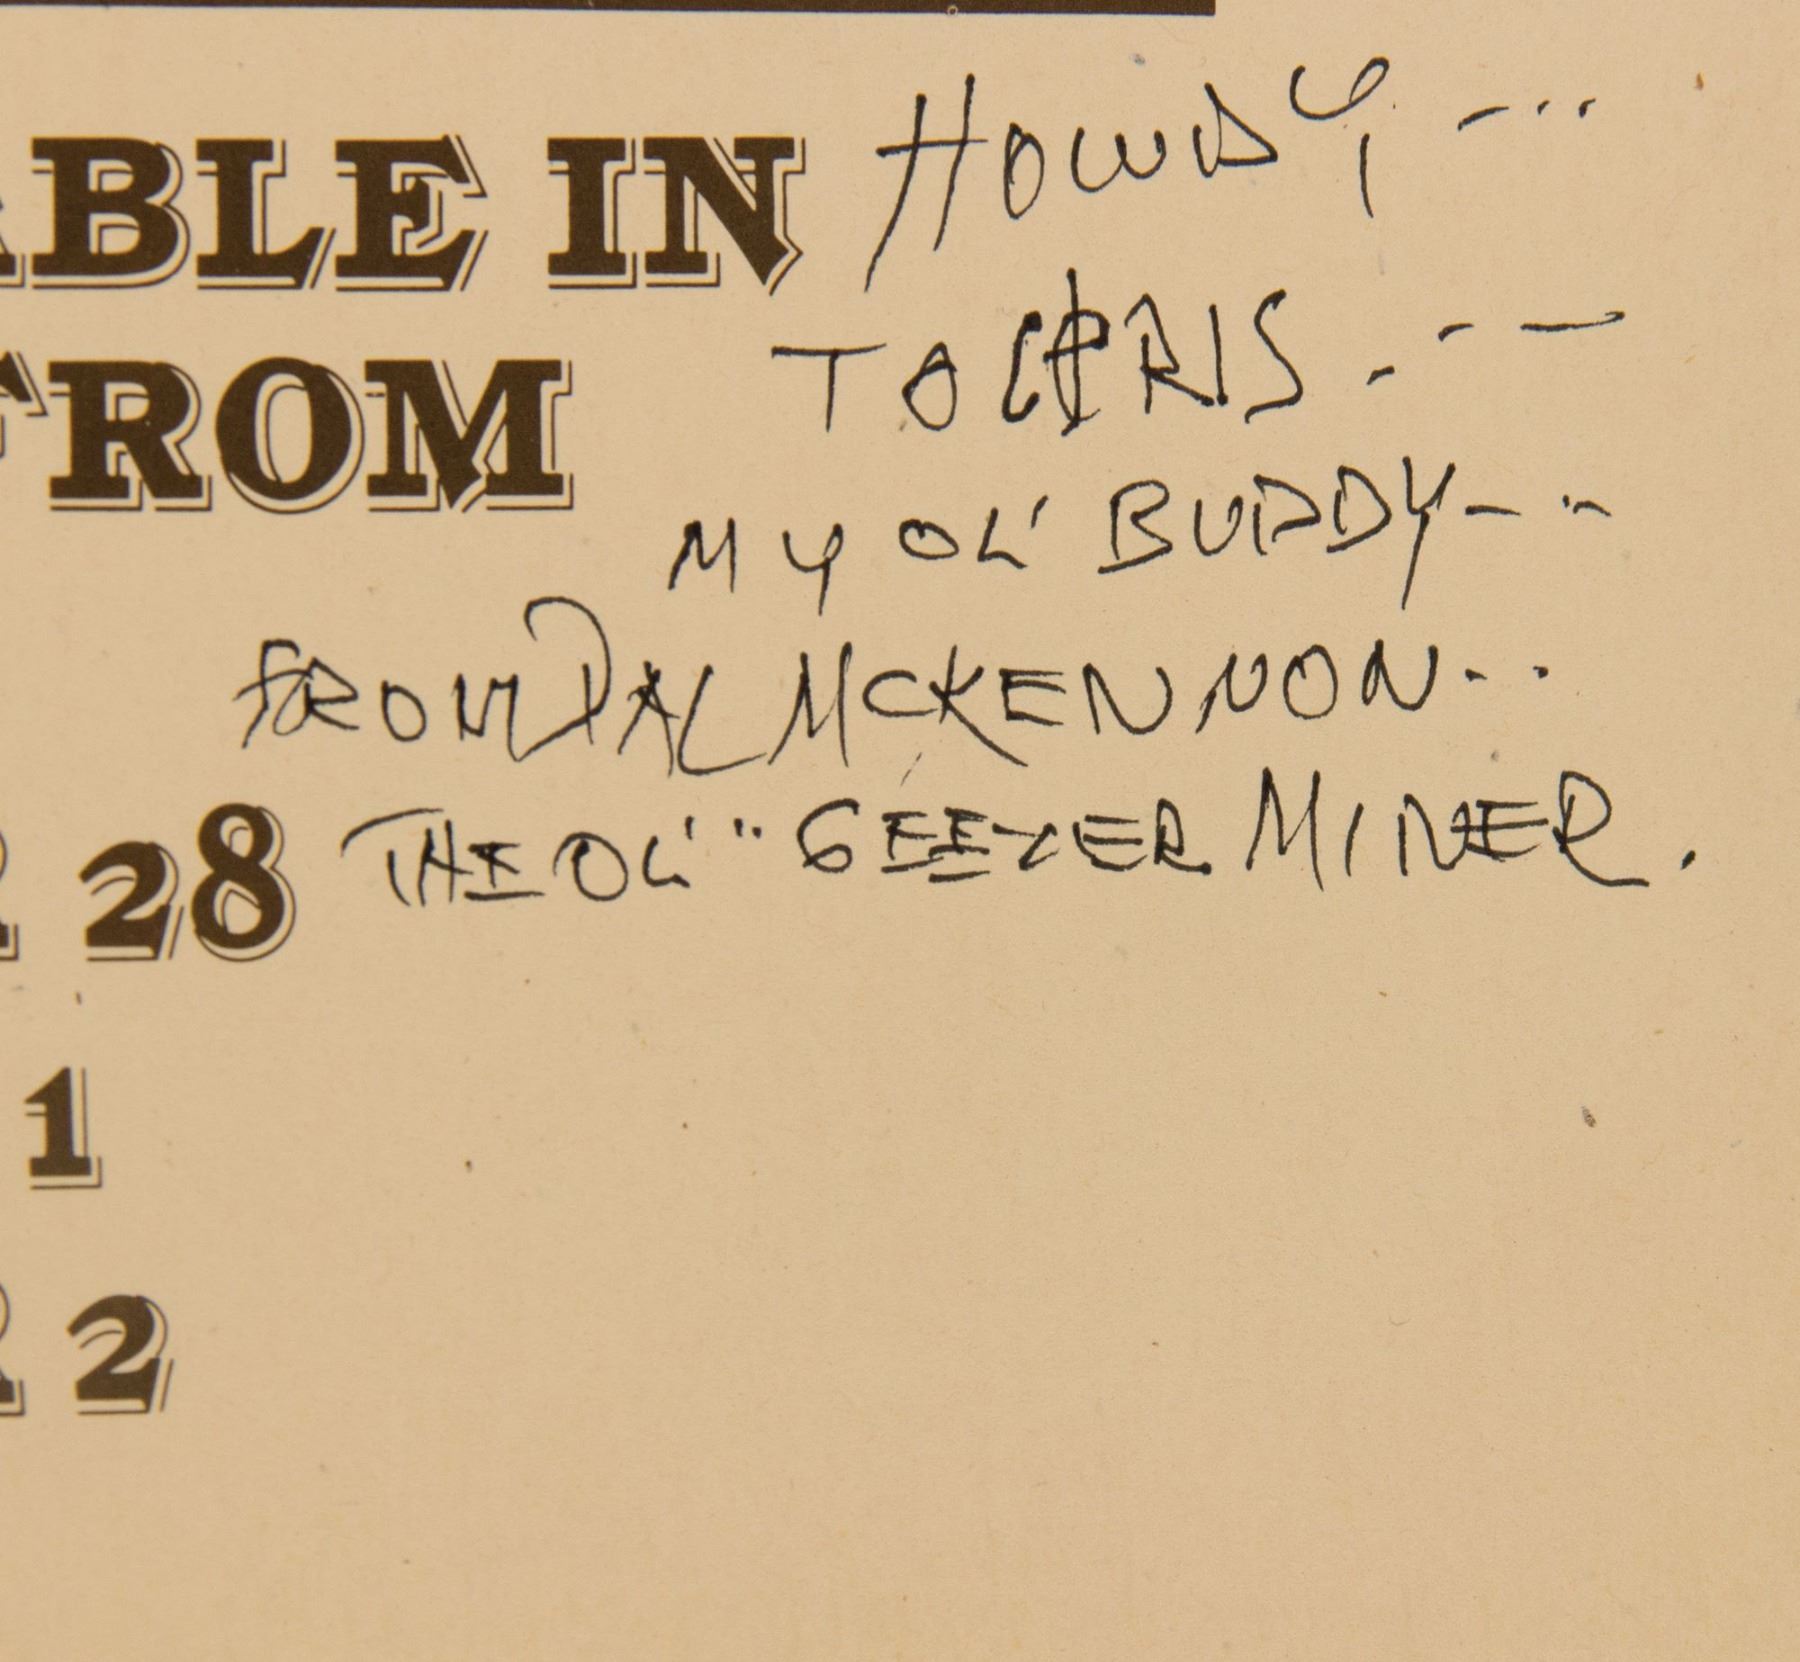 ABLE IN
HOWDY, - ...
FROM
TO CHRIS . - —
MY OL' BUDDY - - ..
FROM DAL MCKENNON - ..
28
THE OL' " GEEZER MINER .
1
2